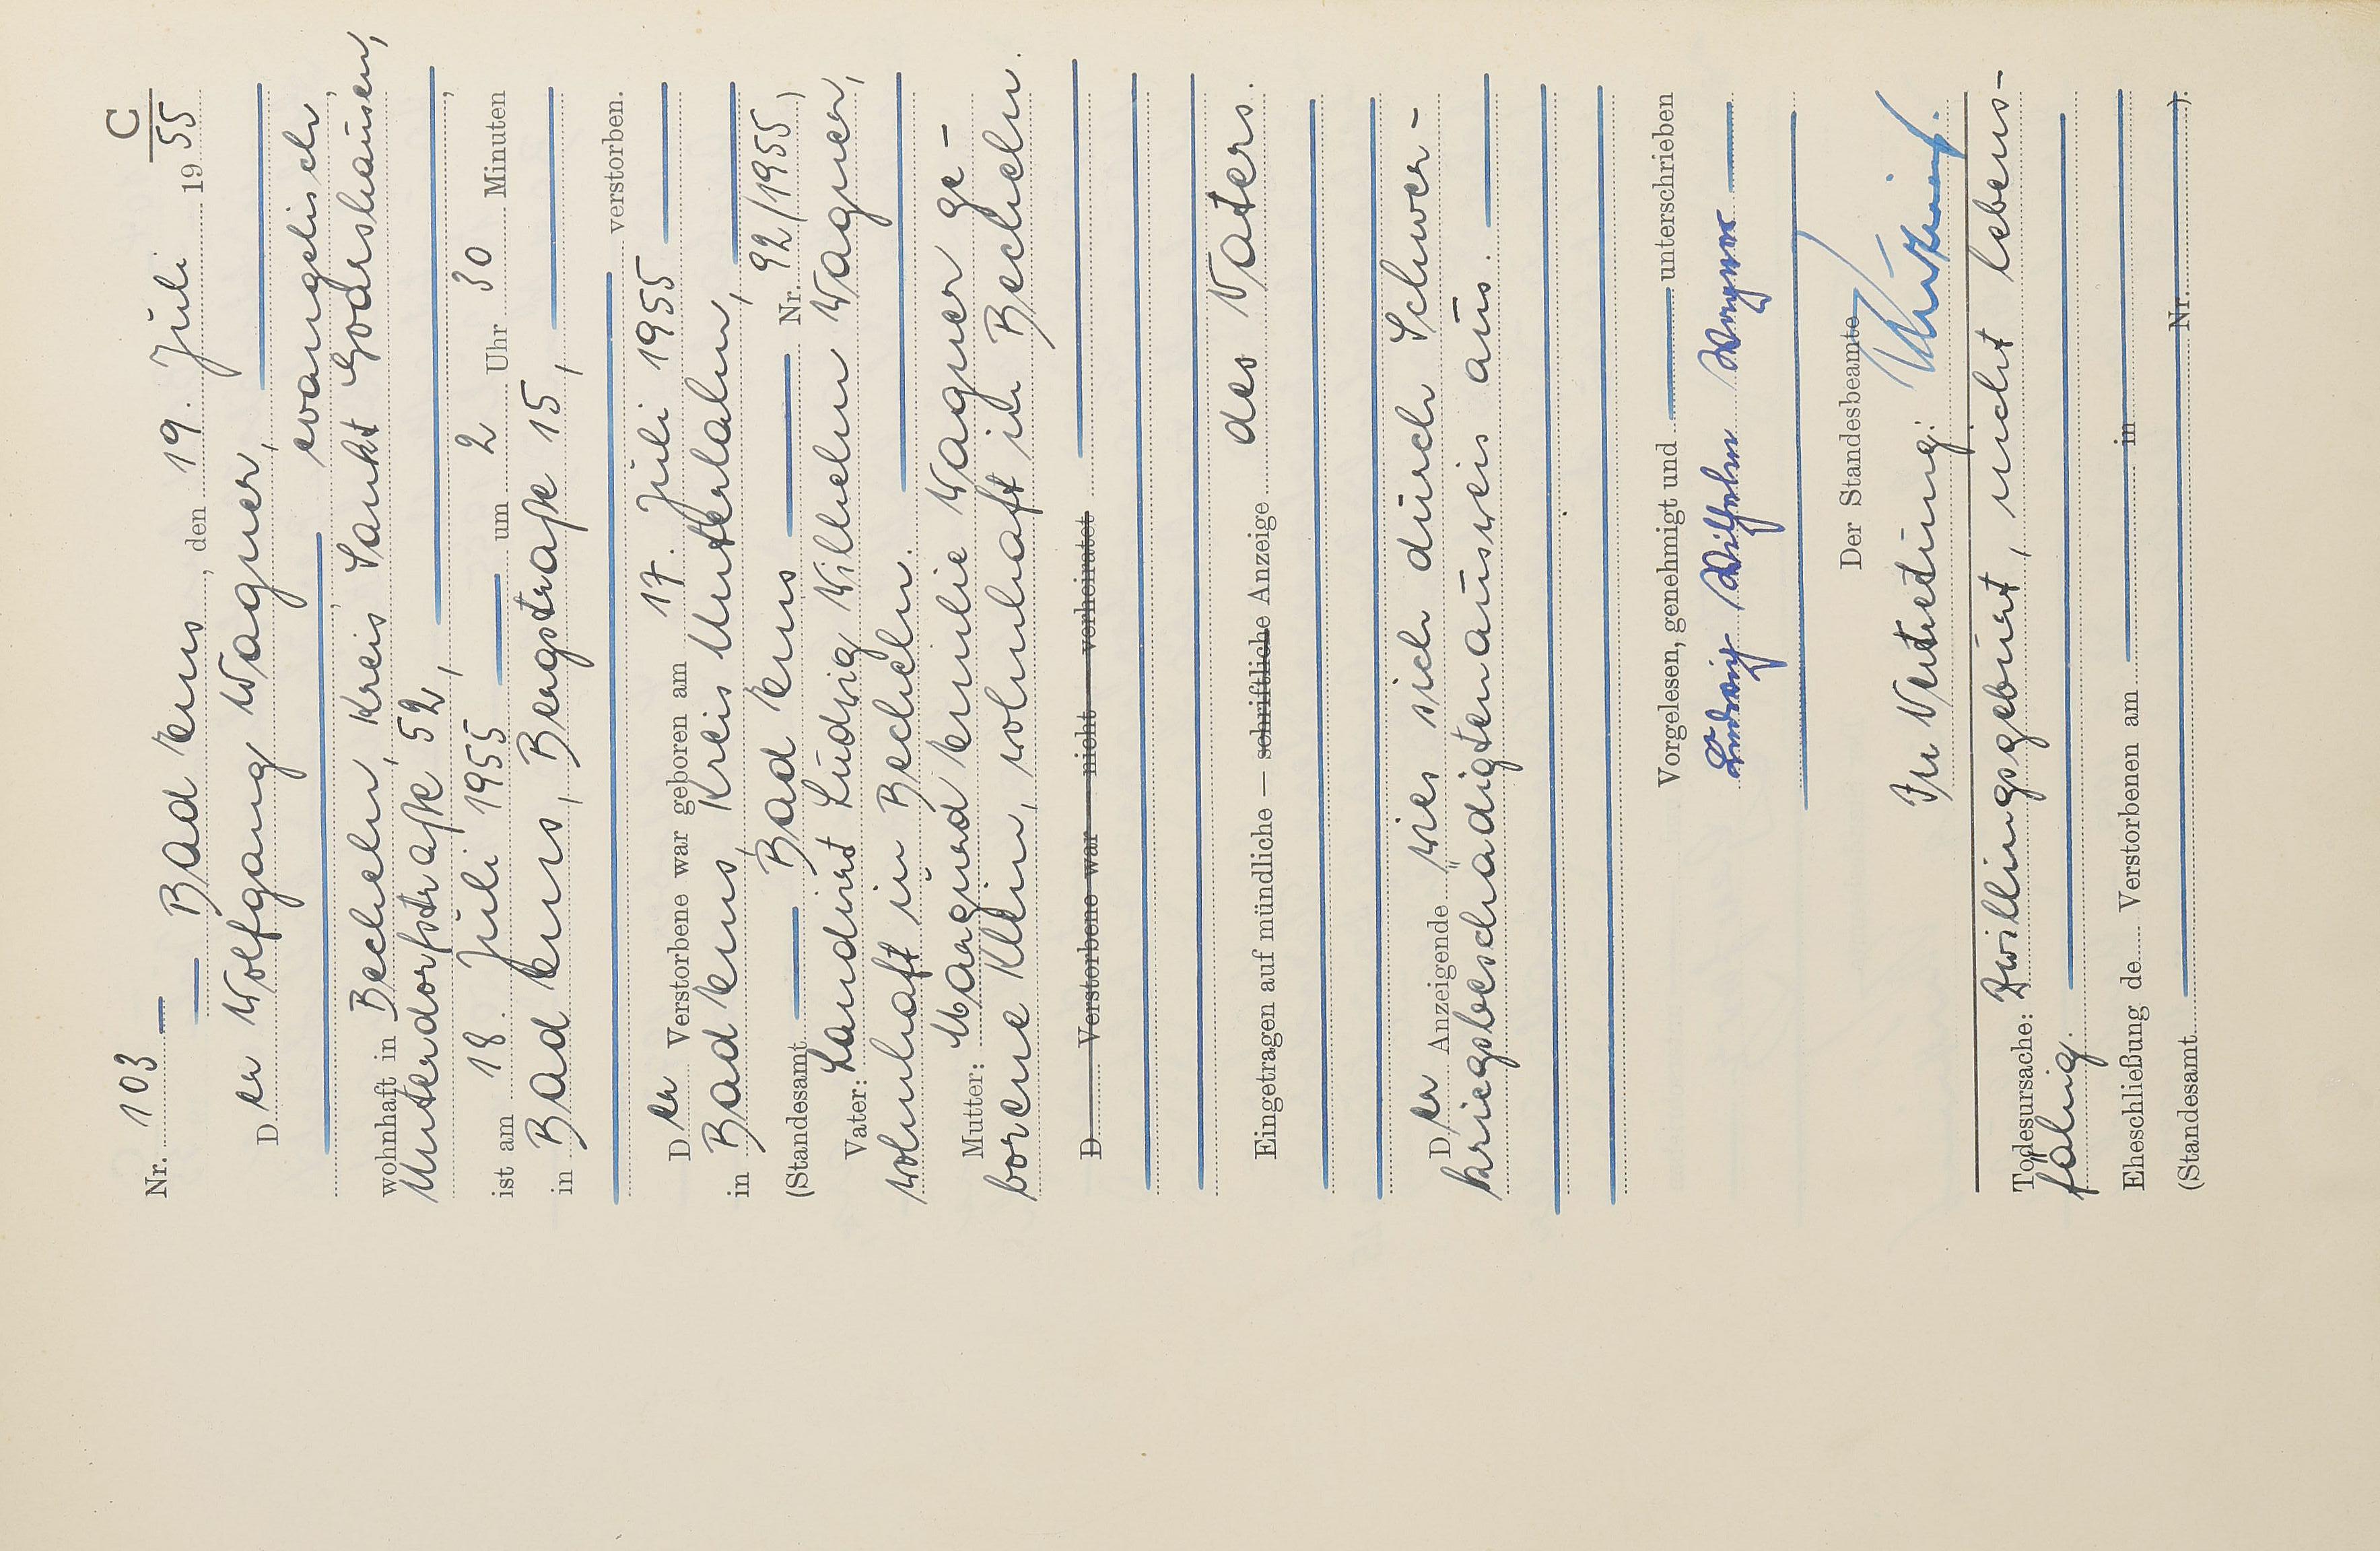 C
Nr. 103
Bad Ems, den 19. Juli 1955
Der Wolfgang Wagner,
evangelisch,
wohnhaft in Becheln, Kreis Sankt Goarshausen,
Unterdorfstraße 52,
ist am 18. Juli 1955 um 2 Uhr 30 Minuten
in Bad Ems, Bergstraße 15,
verstorben.
Der Verstorbene war geboren am 17. Juli 1955
in Bad Ems, Kreis Unterlahn,
(Standesamt Bad Ems Nr. 92/1955)
Vater: Landwirt Ludwig Wilhelm Wagner,
wohnhaft in Becheln.
Mutter: Margund Emilie Wagner ge-
borene Klein, wohnhaft in Becheln.
D Verstorbene war — nicht — verheiratet
Eingetragen auf mündliche — schriftliche Anzeige des Vaters.
Der Anzeigende wies sich durch Schwer-
kriegsbeschädigtenausweis aus.
Vorgelesen, genehmigt und unterschrieben
Ludwig Wilhelm Wagner
Der Standesbeamte
In Vertretung:
Todesursache: Zwillingsgeburt, nicht lebens-
fähig.
Eheschließung de Verstorbenen am in
(Standesamt Nr. ).